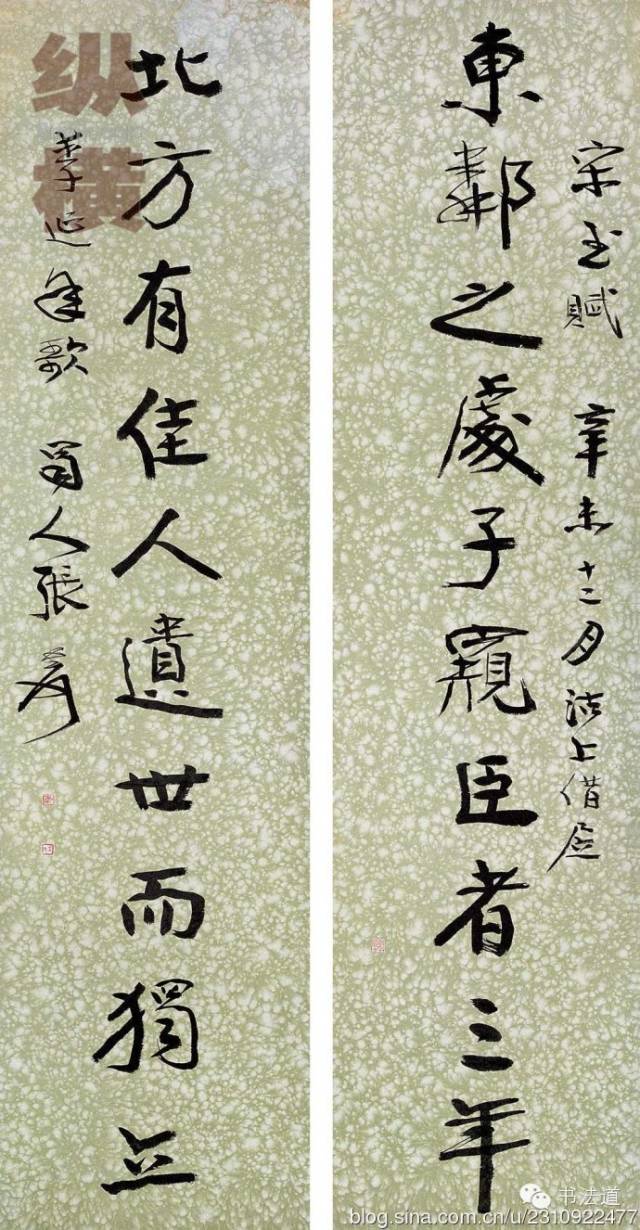 宋玉賦 辛未十二月沽上借居
東鄰之處子窺臣者三年
北方有佳人遺世而獨立
李延年歌 蜀人張爰
纵横
书法道
blog.sina.com.cn/u/2310922477